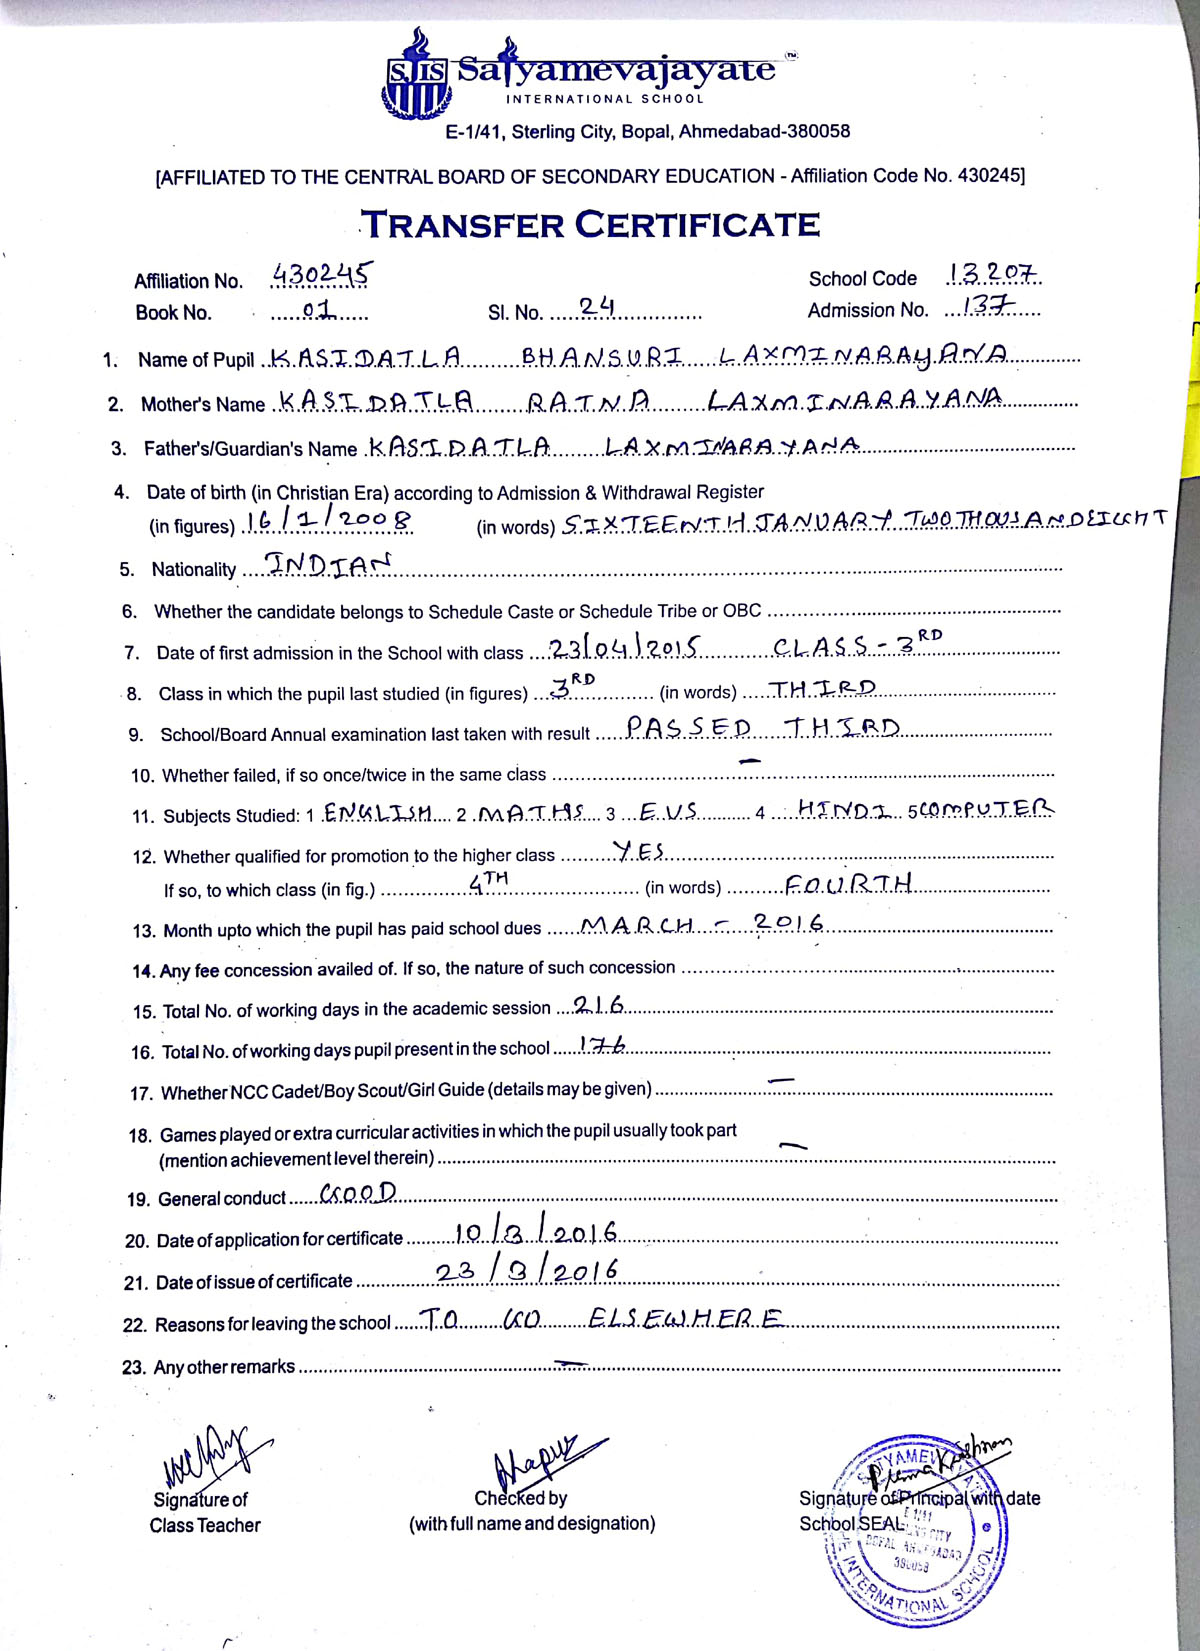 SIS Satyamevajayate TM
INTERNATIONAL SCHOOL
E-1/41, Sterling City, Bopal, Ahmedabad-380058
[AFFILIATED TO THE CENTRAL BOARD OF SECONDARY EDUCATION - Affiliation Code No. 430245]
TRANSFER CERTIFICATE
Affiliation No. 430245 School Code 13207
Book No. 01 Sl. No. 24 Admission No. 137
1. Name of Pupil KASIDATLA BHANSURI LAXMINARAYANA
2. Mother's Name KASIDATLA RATNA LAXMINARAYANA
3. Father's/Guardian's Name KASIDATLA LAXMINARAYANA
4. Date of birth (in Christian Era) according to Admission & Withdrawal Register
(in figures) 16/1/2008 (in words) SIXTEENTH JANUARY TWO THOUSAND EIGHT
5. Nationality INDIAN
6. Whether the candidate belongs to Schedule Caste or Schedule Tribe or OBC
7. Date of first admission in the School with class 23/04/2015 CLASS - 3RD
8. Class in which the pupil last studied (in figures) 3RD (in words) THIRD
9. School/Board Annual examination last taken with result PASSED THIRD
10. Whether failed, if so once/twice in the same class –
11. Subjects Studied: 1 ENGLISH 2 MATHS 3 EVS 4 HINDI 5 COMPUTER
12. Whether qualified for promotion to the higher class YES
If so, to which class (in fig.) 4TH (in words) FOURTH
13. Month upto which the pupil has paid school dues MARCH - 2016
14. Any fee concession availed of. If so, the nature of such concession
15. Total No. of working days in the academic session 216
16. Total No. of working days pupil present in the school 176
17. Whether NCC Cadet/Boy Scout/Girl Guide (details may be given) –
18. Games played or extra curricular activities in which the pupil usually took part
(mention achievement level therein) –
19. General conduct GOOD
20. Date of application for certificate 10/3/2016
21. Date of issue of certificate 23/3/2016
22. Reasons for leaving the school TO GO ELSEWHERE
23. Any other remarks –
Signature of Checked by Signature of Principal with date
Class Teacher (with full name and designation) School SEAL
SATYAMEVAJAYATE
INTERNATIONAL SCHOOL
E 1/41
CITY
BOPAL AHMEDABAD
380058